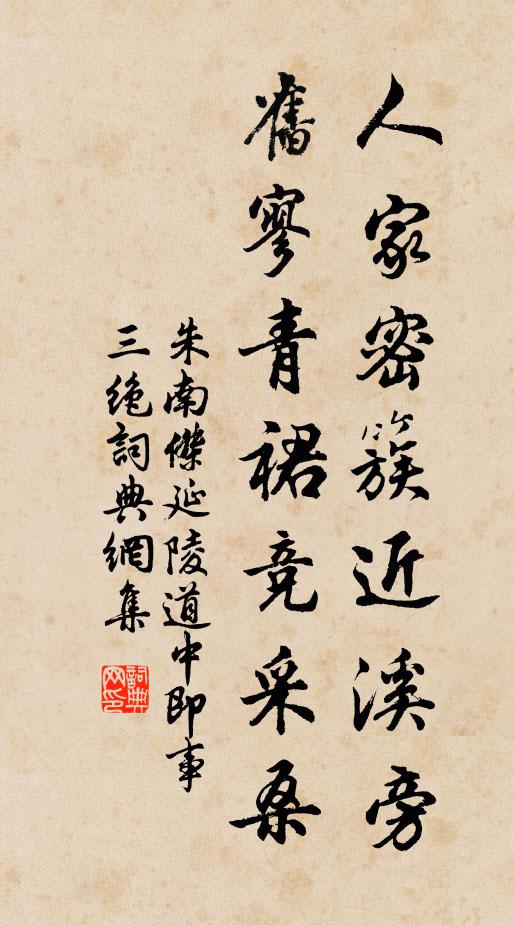 人家密簇近溪旁
舊寥青裙竞采桑
朱南傑延陵道中即事
三绝詞典網集
詞典网印